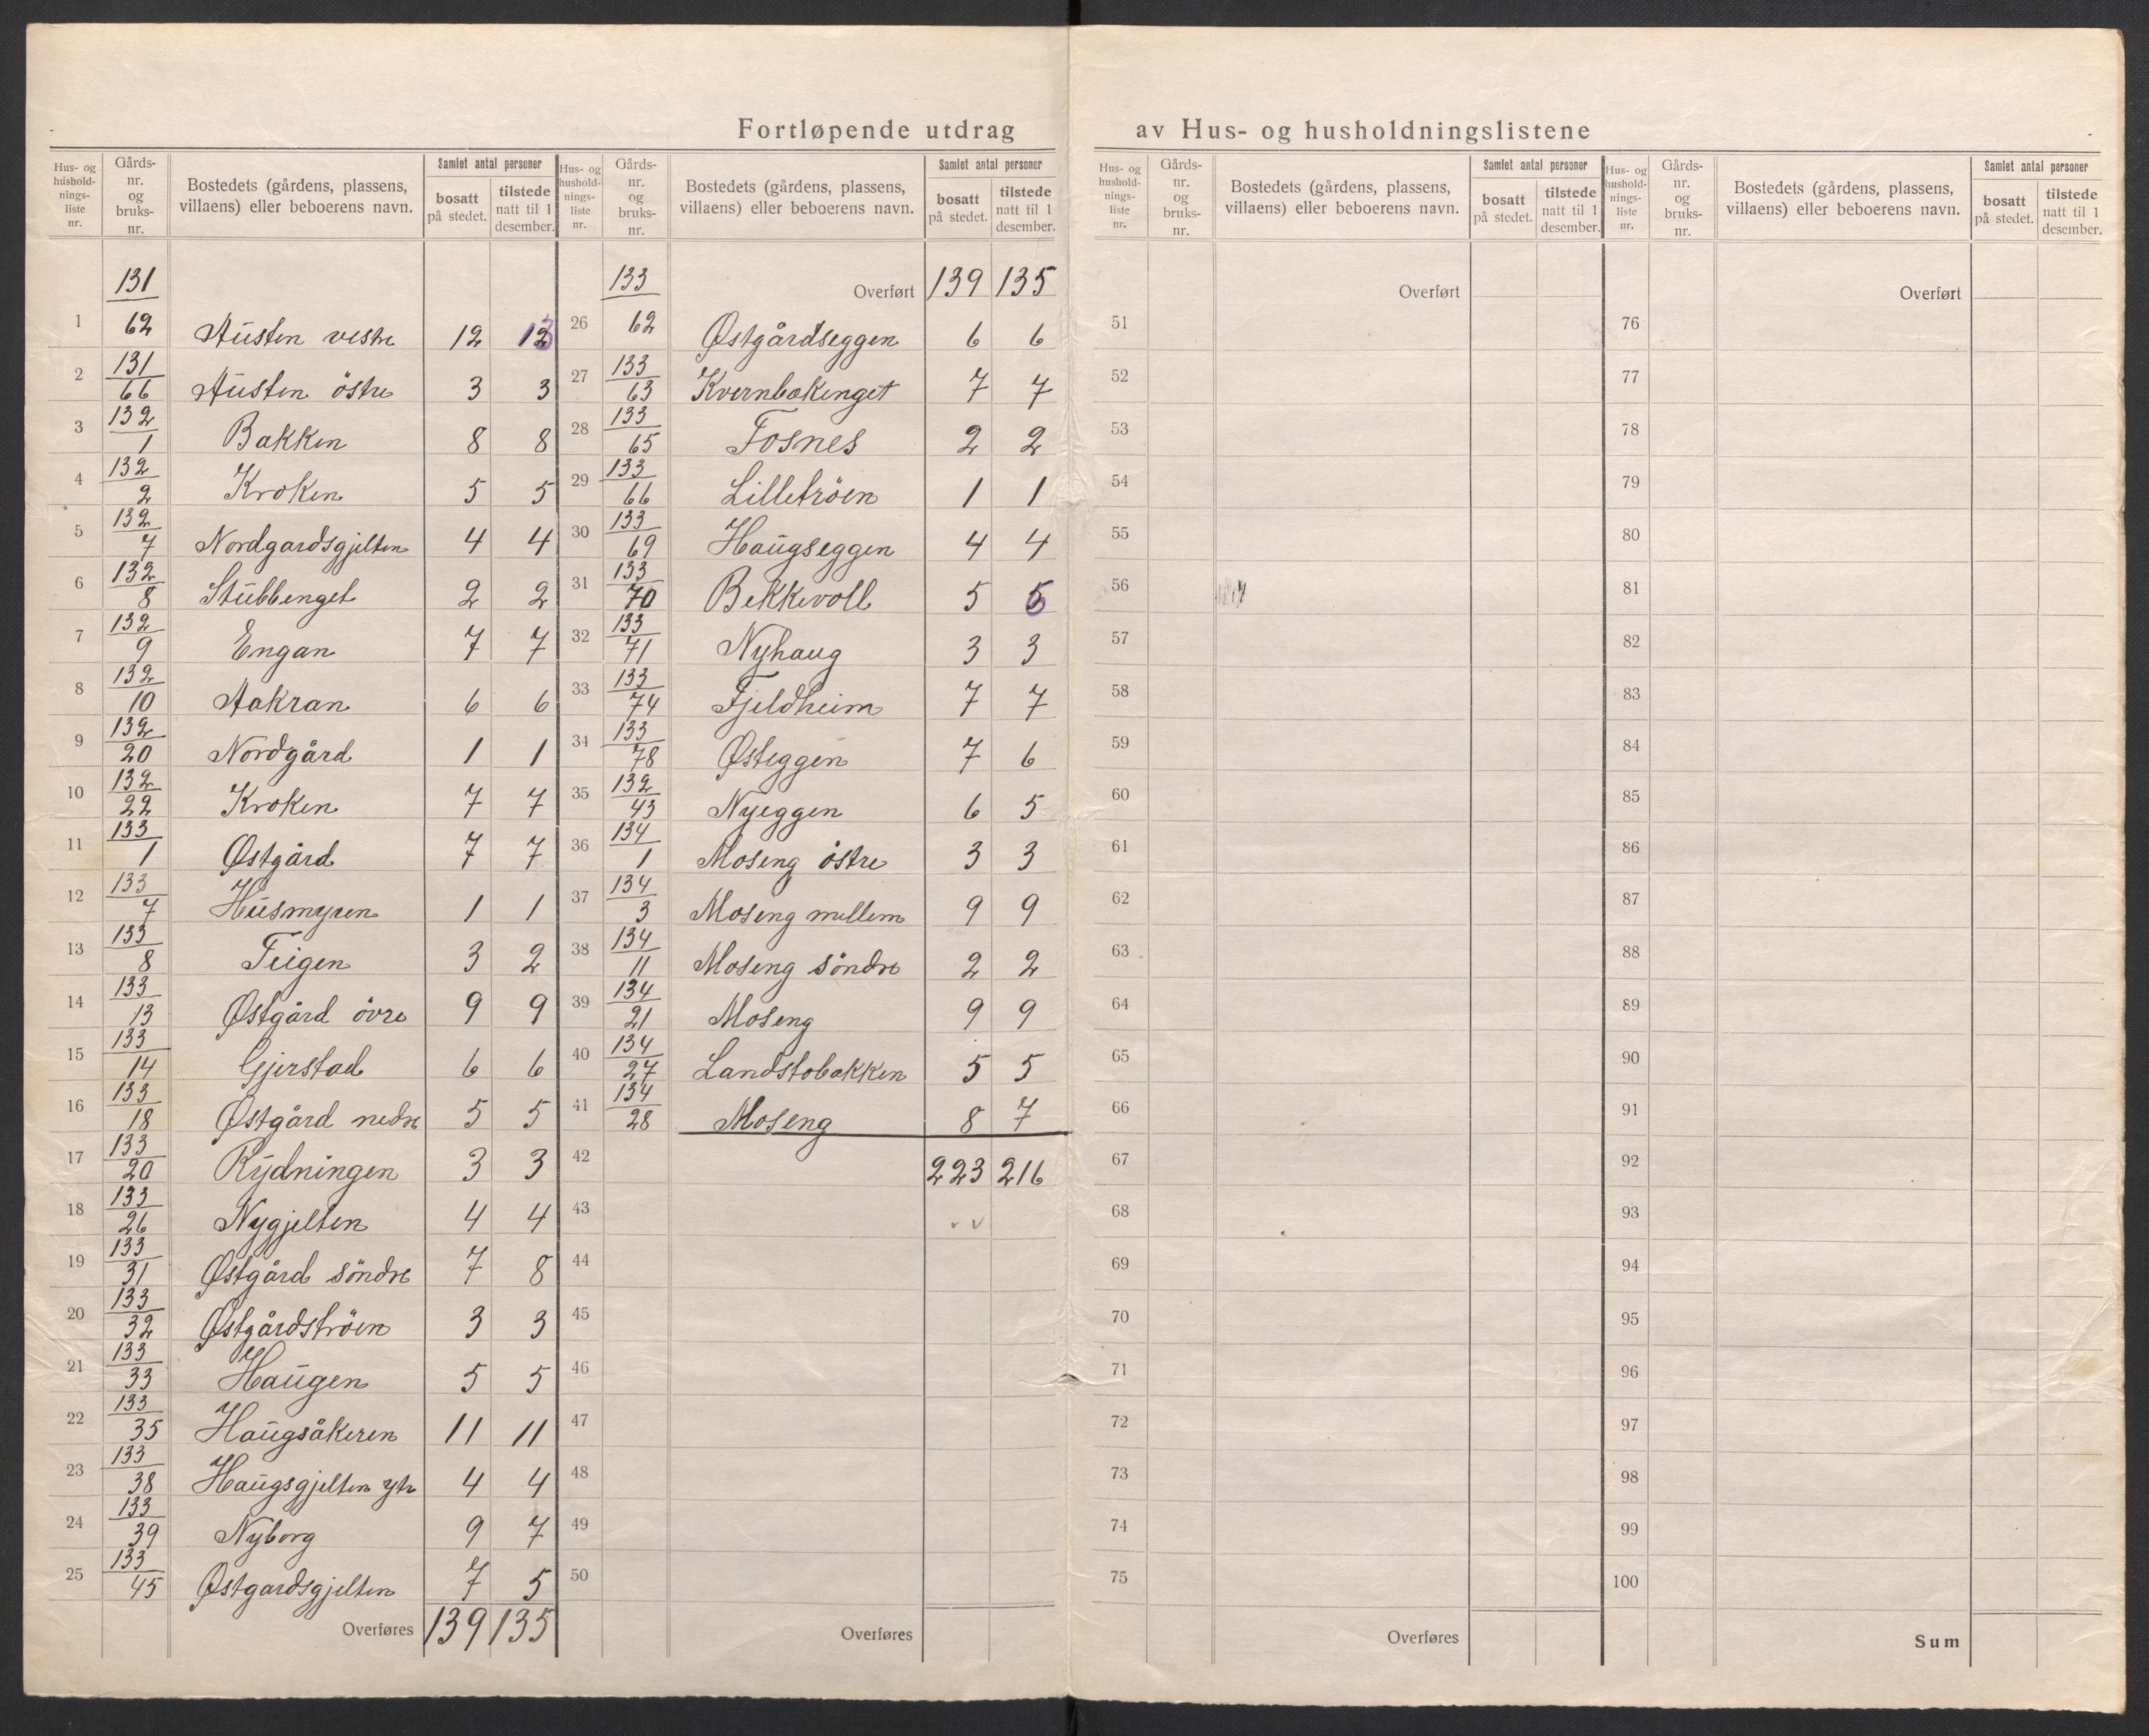 Fortløpende utdrag av Hus- og husholdningslistene
Hus- og husholdnings-liste nr. | Gårds-nr. og bruks-nr. | Bostedets (gårdens, plassens, villaens) eller beboerens navn. | Samlet antal personer | bosatt på stedet. | tilstede natt til 1 desember.
1 131/62 Austen vestre 12 12
2 131/66 Austen östre 3 3
3 132/1 Bakken 8 8
4 132/2 Kroken 5 5
5 132/7 Nordgardsgjelten 4 4
6 132/8 Stubbenget 2 2
7 132/9 Engan 7 7
8 132/10 Aakran 6 6
9 132/20 Nordgård 1 1
10 132/22 Kroken 7 7
11 133/1 Østgård 7 7
12 133/7 Husmyren 1 1
13 133/8 Teigen 3 2
14 133/13 Østgård övre 9 9
15 133/14 Gjerstad 6 6
16 133/18 Østgård nedre 5 5
17 133/20 Rydningen 3 3
18 133/26 Nygjelten 4 4
19 133/31 Østgård söndre 7 8
20 133/32 Østgårdströen 3 3
21 133/33 Haugen 5 5
22 133/35 Haugsåkeren 11 11
23 133/38 Haugsgjelten ytr 4 4
24 133/39 Nyborg 9 7
25 133/45 Østgardsgjelten 7 5
Overføres 139 135
Hus- og husholdnings-liste nr. | Gårds-nr. og bruks-nr. | Bostedets (gårdens, plassens, villaens) eller beboerens navn. | Samlet antal personer | bosatt på stedet. | tilstede natt til 1 desember.
Overført 139 135
26 133/62 Østgårdseggen 6 6
27 133/63 Kvernbakenget 7 7
28 133/65 Fosnes 2 2
29 133/66 Lilletröen 1 1
30 133/69 Haugseggen 4 4
31 133/70 Bekkevoll 5 5
32 133/71 Nyhaug 3 3
33 133/74 Fjeldheim 7 7
34 133/78 Østeggen 7 6
35 132/43 Nyeggen 6 5
36 134/1 Moseng östre 3 3
37 134/3 Moseng mellem 9 9
38 134/11 Moseng söndre 2 2
39 134/21 Moseng 9 9
40 134/27 Landstobakken 5 5
41 134/28 Moseng 8 7
42 223 216
43
44
45
46
47
48
49
50
Overføres
Hus- og husholdnings-liste nr. | Gårds-nr. og bruks-nr. | Bostedets (gårdens, plassens, villaens) eller beboerens navn. | Samlet antal personer | bosatt på stedet. | tilstede natt til 1 desember.
Overført
51
52
53
54
55
56
57
58
59
60
61
62
63
64
65
66
67
68
69
70
71
72
73
74
75
Overføres
Hus- og husholdnings-liste nr. | Gårds-nr. og bruks-nr. | Bostedets (gårdens, plassens, villaens) eller beboerens navn. | Samlet antal personer | bosatt på stedet. | tilstede natt til 1 desember.
Overført
76
77
78
79
80
81
82
83
84
85
86
87
88
89
90
91
92
93
94
95
96
97
98
99
100
Sum